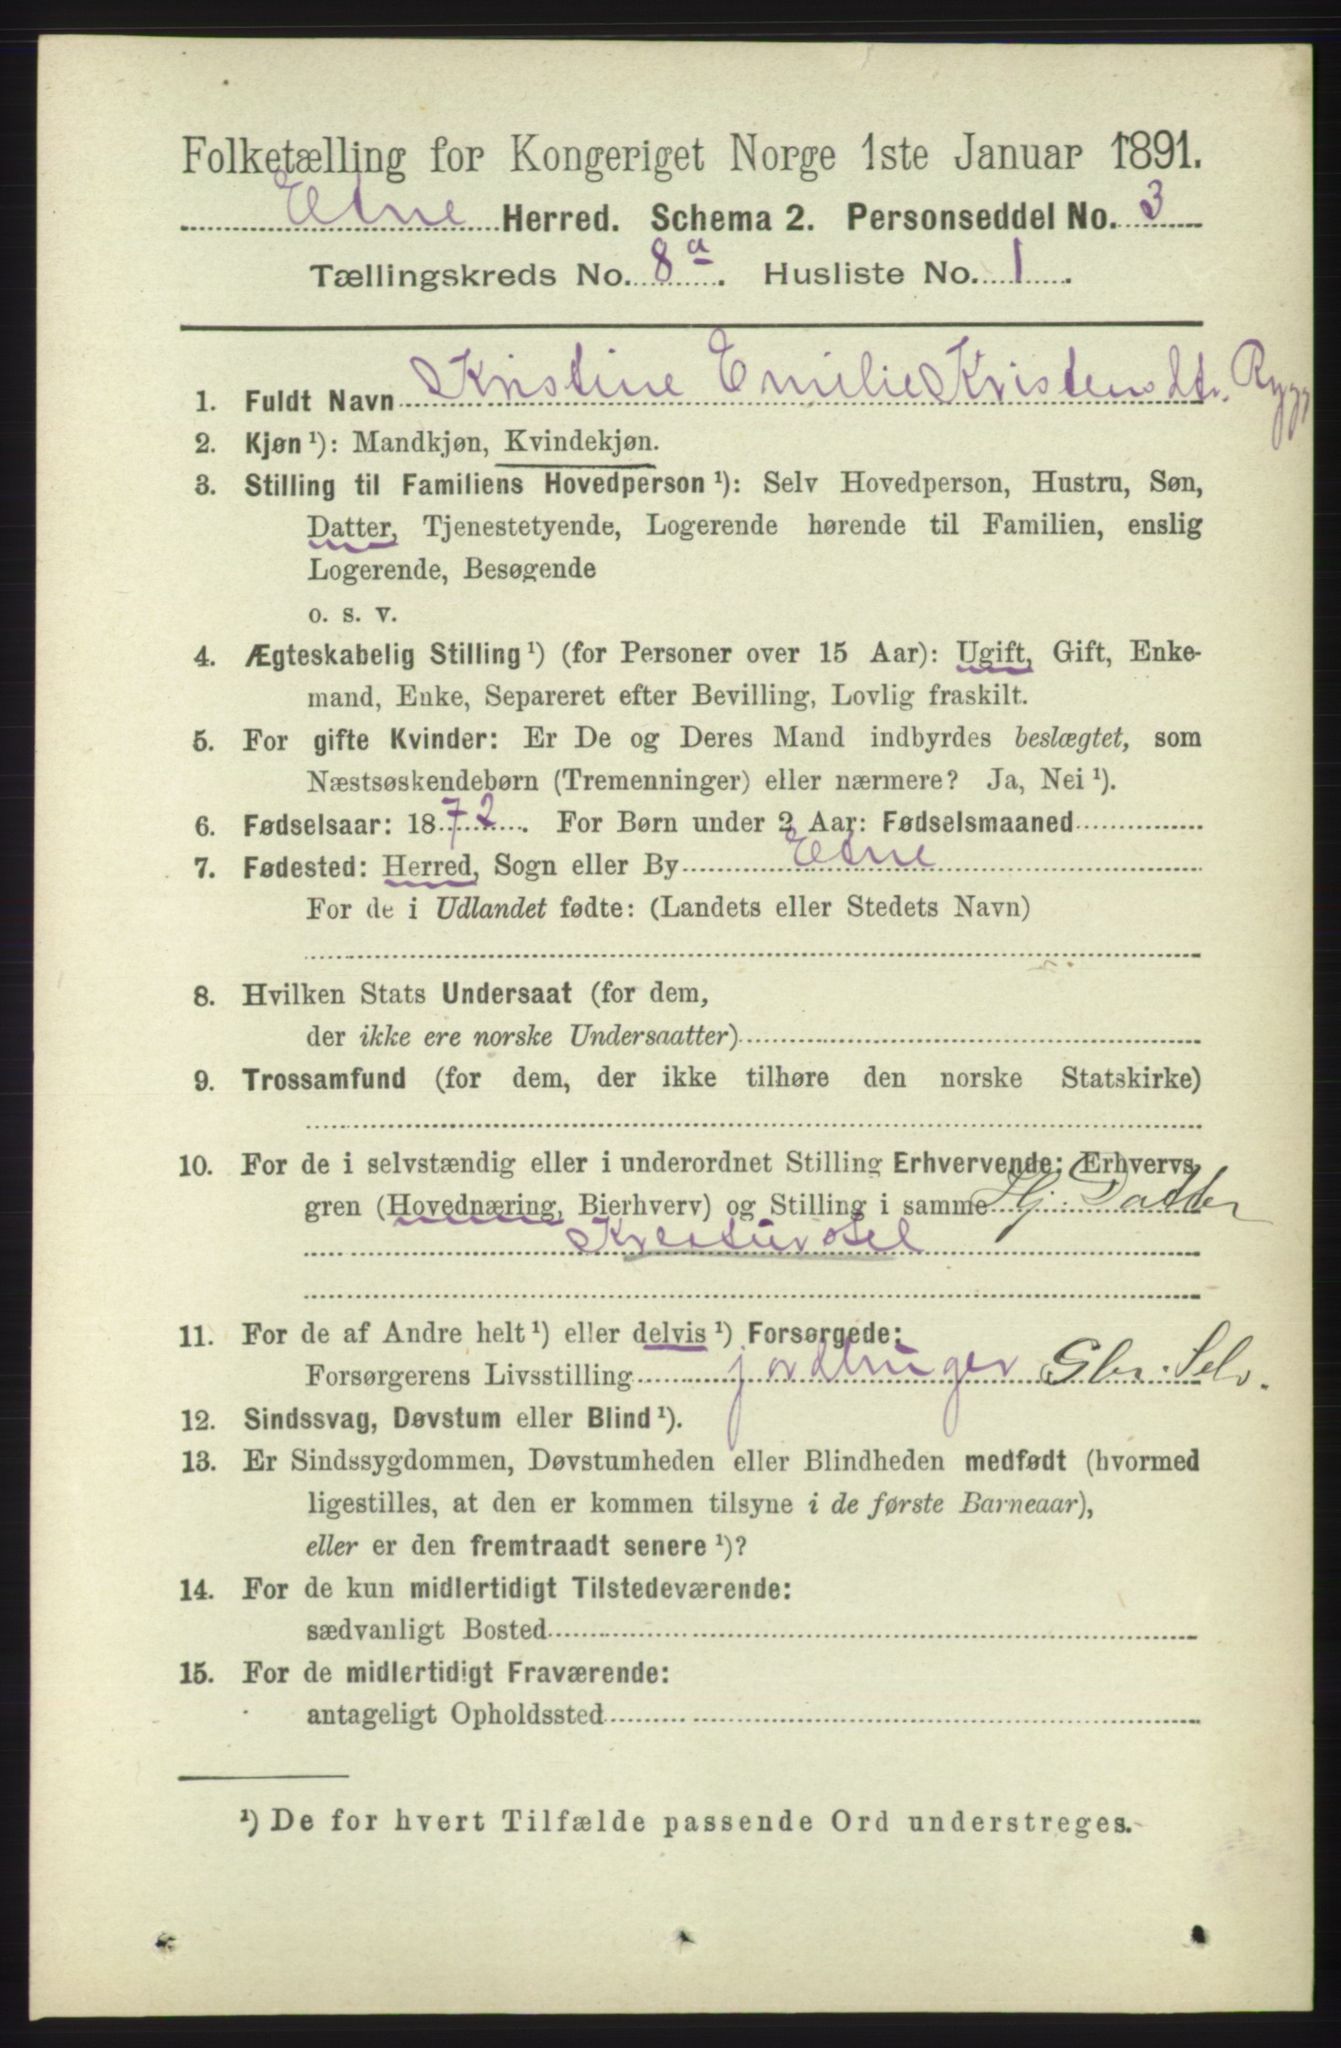 Folketælling for Kongeriget Norge 1ste Januar 1891.
Etne Herred. Schema 2. Personseddel No. 3
Tællingskreds No. 8a. Husliste No. 1.
1. Fuldt Navn Kristine Emilie Kristensdtr. Rygg
2. Kjøn ¹): Mandkjøn, Kvindekjøn.
3. Stilling til Familiens Hovedperson ¹): Selv Hovedperson, Hustru, Søn,
Datter, Tjenestetyende, Logerende hørende til Familien, enslig
Logerende, Besøgende
o. s. v.
4. Ægteskabelig Stilling ¹) (for Personer over 15 Aar): Ugift, Gift, Enke-
mand, Enke, Separeret efter Bevilling, Lovlig fraskilt.
5. For gifte Kvinder: Er De og Deres Mand indbyrdes beslægtet, som
Næstsøskendebørn (Tremenninger) eller nærmere? Ja, Nei ¹).
6. Fødselsaar: 1872. For Børn under 2 Aar: Fødselsmaaned
7. Fødested: Herred, Sogn eller By Etne
For de i Udlandet fødte: (Landets eller Stedets Navn)
8. Hvilken Stats Undersaat (for dem,
der ikke ere norske Undersaatter)
9. Trossamfund (for dem, der ikke tilhøre den norske Statskirke)
10. For de i selvstændig eller i underordnet Stilling Erhvervende: Erhvervs
gren (Hovednæring, Bierhverv) og Stilling i samme Hj. Datter
Kreaturstel
11. For de af Andre helt ¹) eller delvis ¹) Forsørgede:
Forsørgerens Livsstilling jordbruger Gbr. Selv.
12. Sindssvag, Døvstum eller Blind ¹).
13. Er Sindssygdommen, Døvstumheden eller Blindheden medfødt (hvormed
ligestilles, at den er kommen tilsyne i de første Barneaar),
eller er den fremtraadt senere ¹)?
14. For de kun midlertidigt Tilstedeværende:
sædvanligt Bosted
15. For de midlertidigt Fraværende:
antageligt Opholdssted
¹) De for hvert Tilfælde passende Ord understreges.